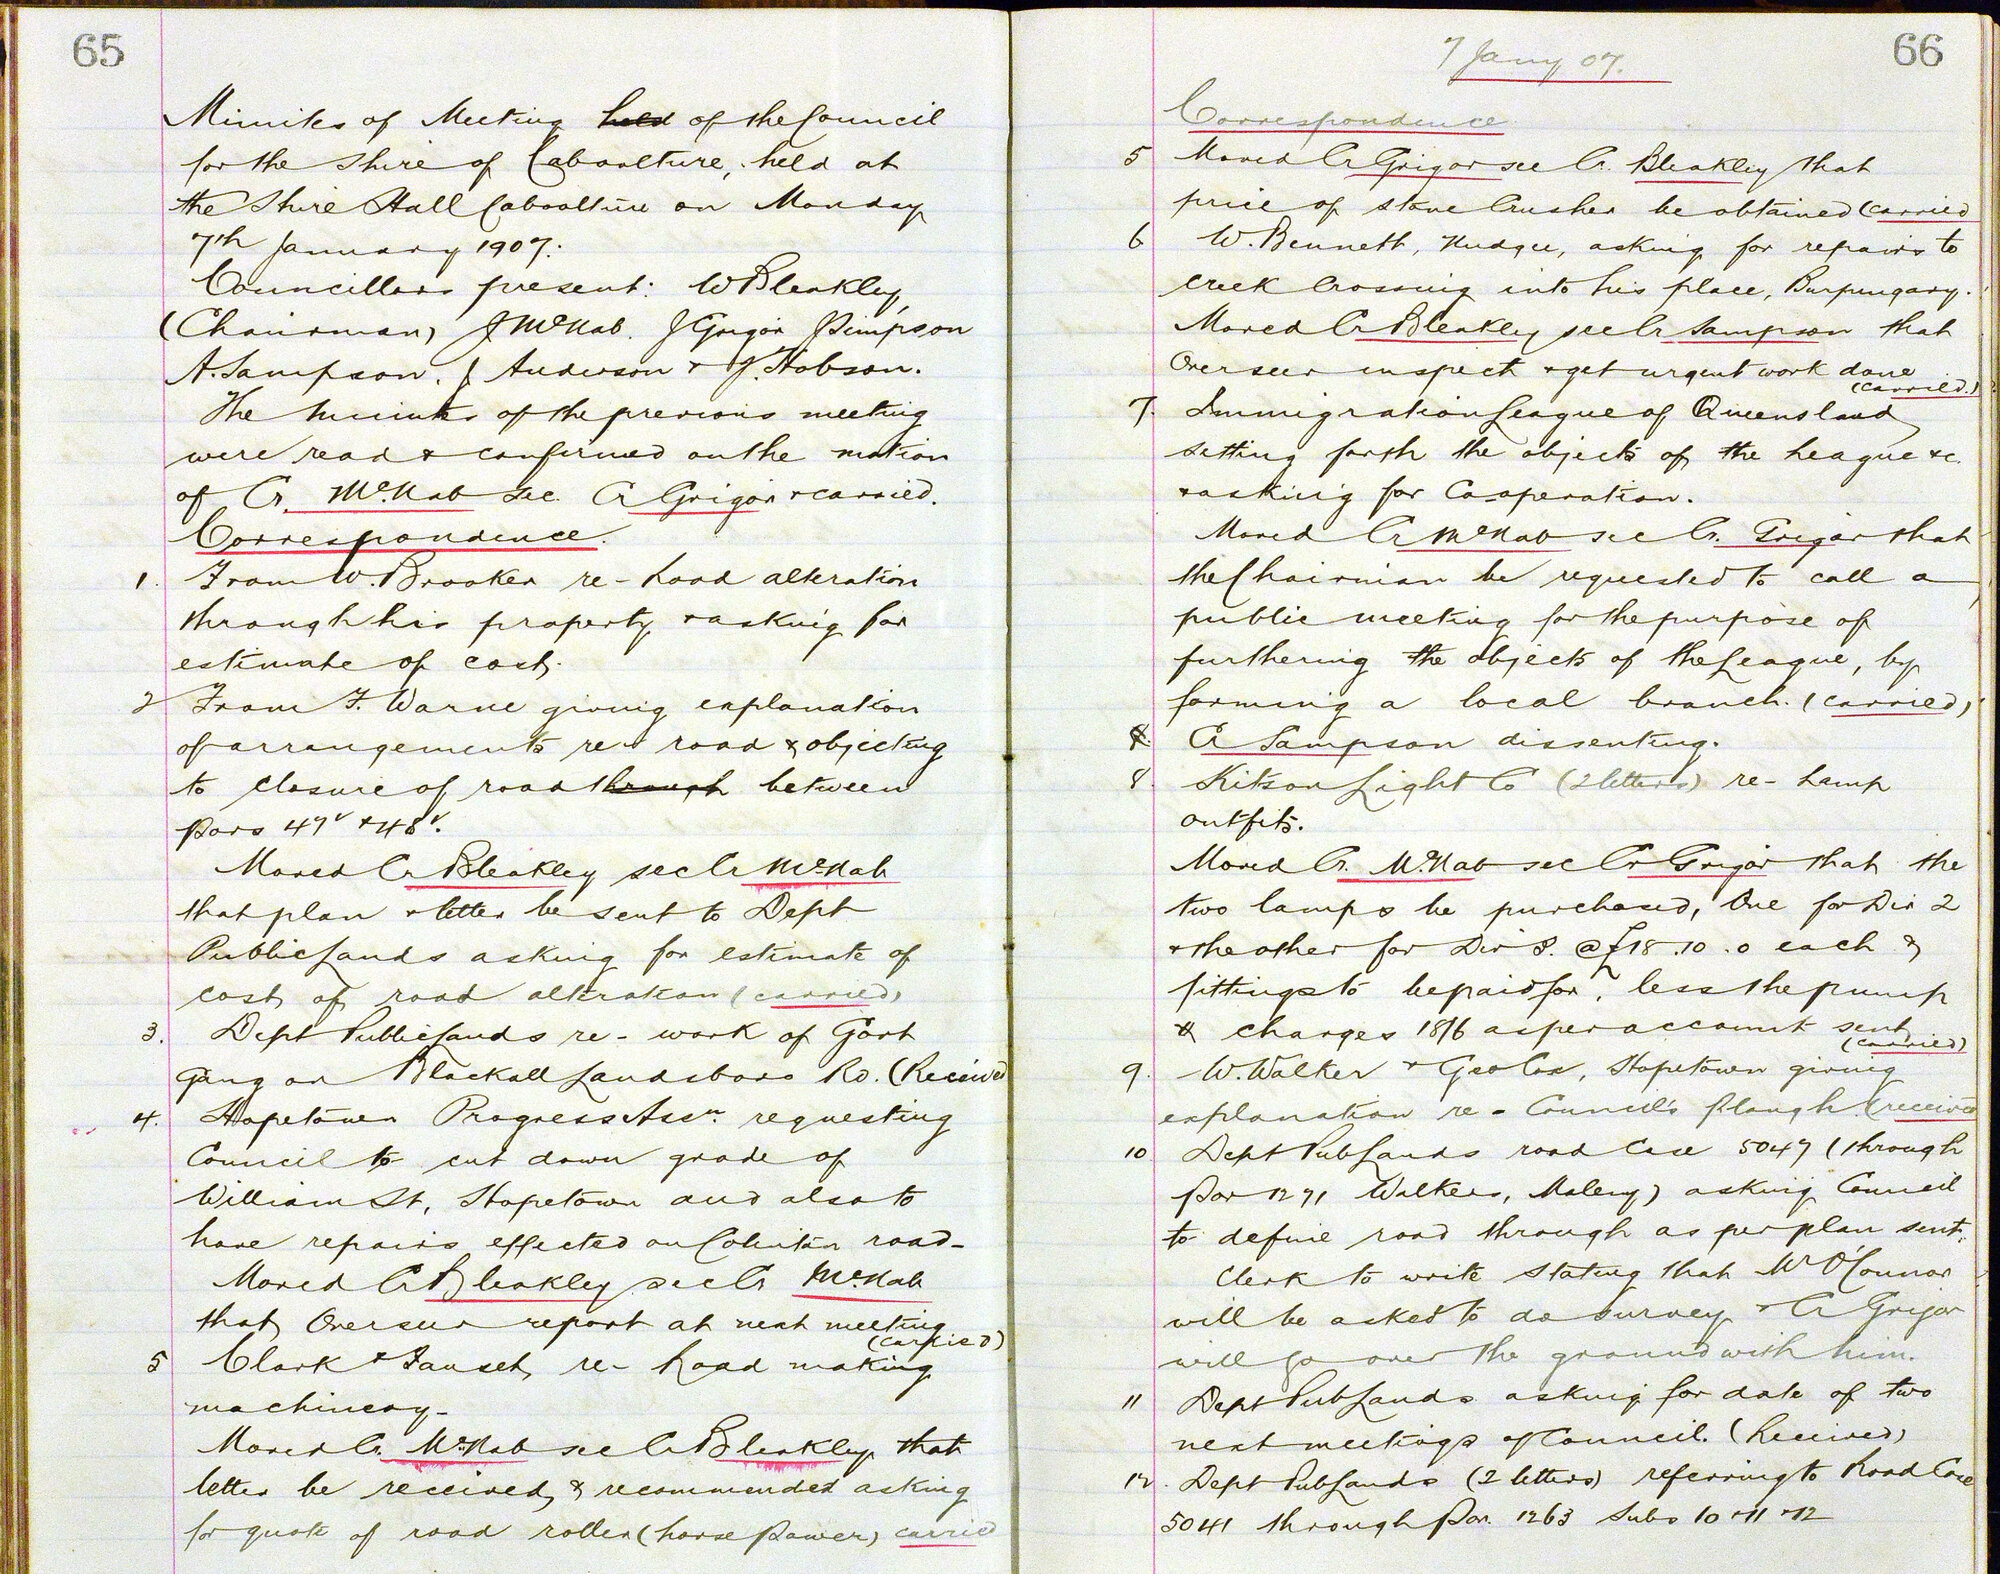 65
Minutes of Meeting held of the Council
for the Shire of Caboolture, held at
the Shire Hall Caboolture on Monday
7th January 1907.
Councillors present: W Bleakley,
(Chairman) J McNab. J Grigor J Simpson
A. Sampson. J Anderson & J. Hobson.
The minutes of the previous meeting
were read & confirmed on the motion
of Cr. McNab sec. Cr Grigor & carried.
Correspondence.
1. From W. Brooker re- Road alteration
through his property & asking for
estimate of cost.
2 From F. Warne giving explanation
of arrangements re- road & objecting
to closure of road through between
Pors 47v & 48v.
Moved Cr Bleakley sec Cr McNab
that plan & letter be sent to Dept
Public Lands asking for estimate of
cost of road alteration (carried)
3. Dept Public Lands re- work of Govt
Gang on Blackall Landsboro Rd. (Received
4. Hopetown Progress Assn. requesting
Council to cut down grade of
William St, Hopetown and also to
have repairs effected on Colinton road-
Moved Cr Bleakley sec Cr McNab
that Overseer report at next meeting
(carried)
5 Clark & Fauset re- Road making
machinery-
Moved Cr. McNab sec Cr Bleakley that
letter be received, & recommended asking
for quote of road roller (horse power) carried
66
7 Jany 07.
Correspondence
5 Moved Cr Grigor sec Cr. Bleakley that
price of stone Crusher be obtained (carried
6 W. Bennett, Nudgee, asking for repairs to
creek Crossing into his place, Burpengary.
Moved Cr Bleakley sec Cr Sampson that
Overseer inspect & get urgent work done
(carried.)
7. Immigration League of Queensland
setting forth the objects of the League &c.
& asking for Co-operation.
Moved Cr McNab sec Cr. Grigor that
the Chairman be requested to call a
public meeting for the purpose of
furthering the objects of the League, by
forming a local branch. (carried)
8. Cr Sampson dissenting.
8. Kitson Light Co (2 letters) re- Lamp
outfits.
Moved Cr. McNab sec Cr Grigor that the
two lamps be purchased, One for Div 2
& the other for Div 3. @ £18.10.0 each &
fittings to be paid for, less the pump
& charges 18/6 as per account sent
(carried)
9. W. Walker & Geo Cox, Hopetown giving
explanation re- Council's plough. (received
10 Dept Pub Lands road Case 5047 (through
Por 1271 Walkers, Maleny) asking Council
to define road through as per plan sent.
Clerk to write stating that Mr O'Connor
will be asked to do survey & Cr Grigor
will go over the ground with him.
11 Dept Pub Lands asking for date of two
next meetings of Council. (Received)
12. Dept Pub Lands (2 letters) referring to Road Case
5041 through Por. 1263 Subs 10 & 11 & 12